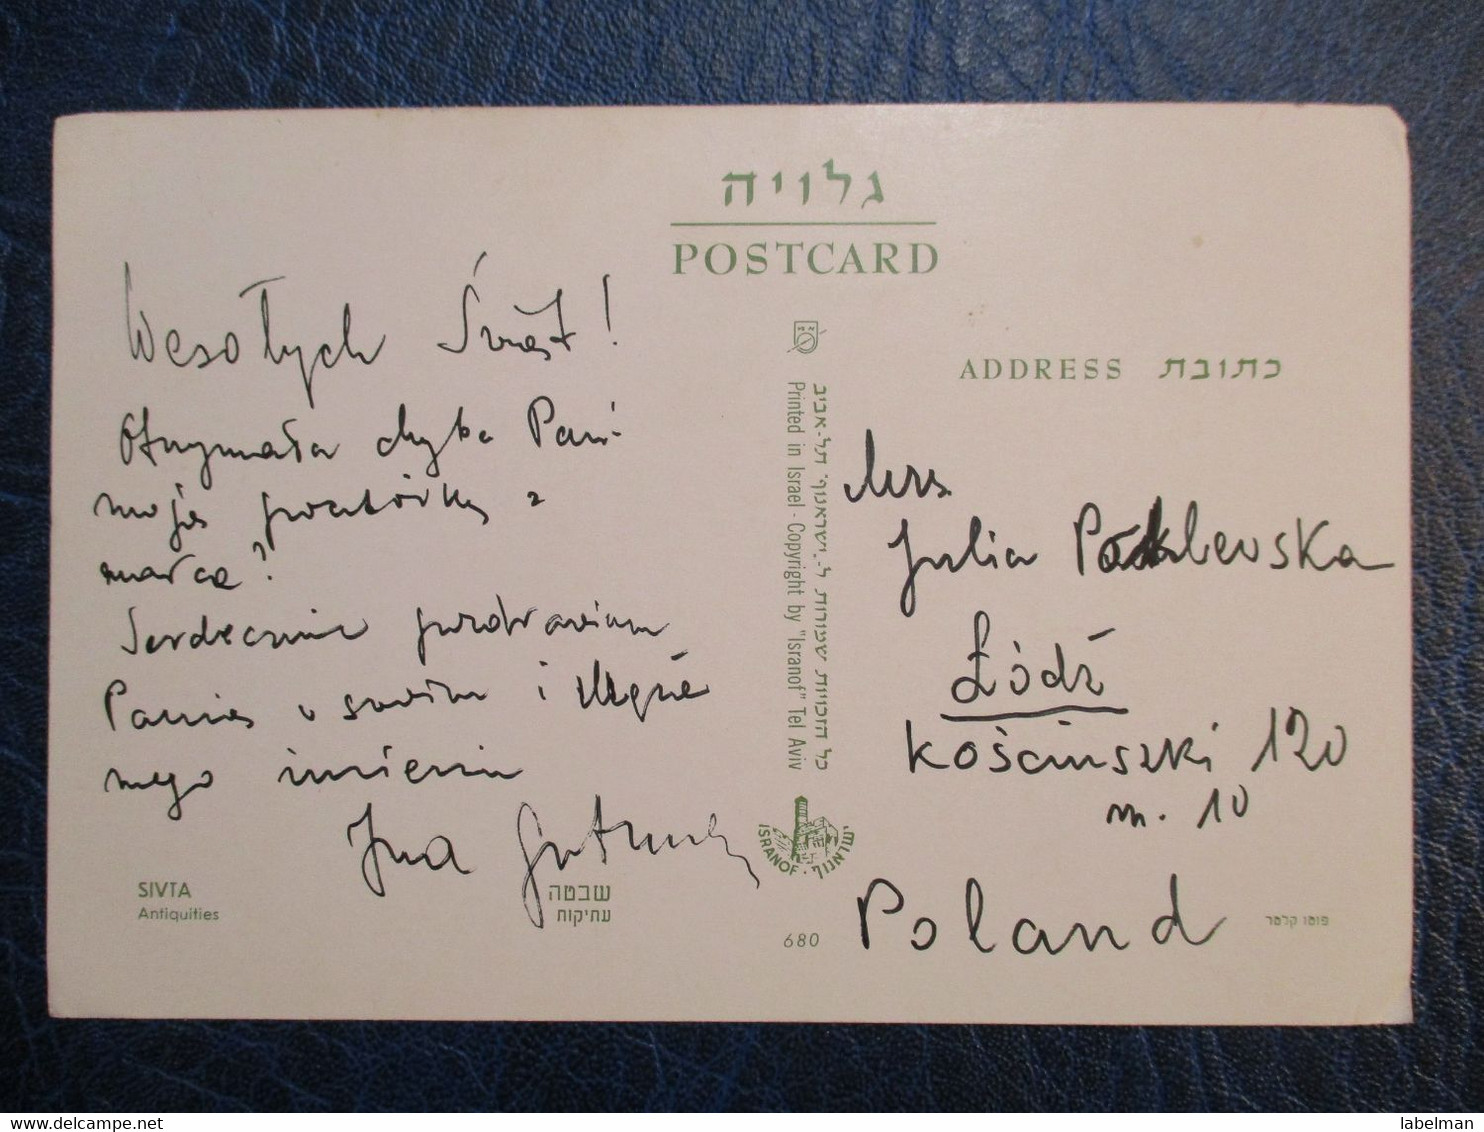 גלויה
POSTCARD
Wesołych Świąt!
Otrzymała chyba Pani
moją pocztówkę z
marca?
Serdecznie pozdrawiam
Panią w swoim i
mego imieniu
Ina
SIVTA
Antiquities
שבטה
עתיקות
680
כל הזכויות שמורות ל"ישראנוף" תל-אביב
Printed in Israel - Copyright by "Isranof" Tel Aviv
ISRANOF · ישראנוף
ADDRESS כתובת
Mrs.
Julia
Łódź
Kościuszki 120
m. 10
Poland
פוטו קלטר
delcampe.net
labelman